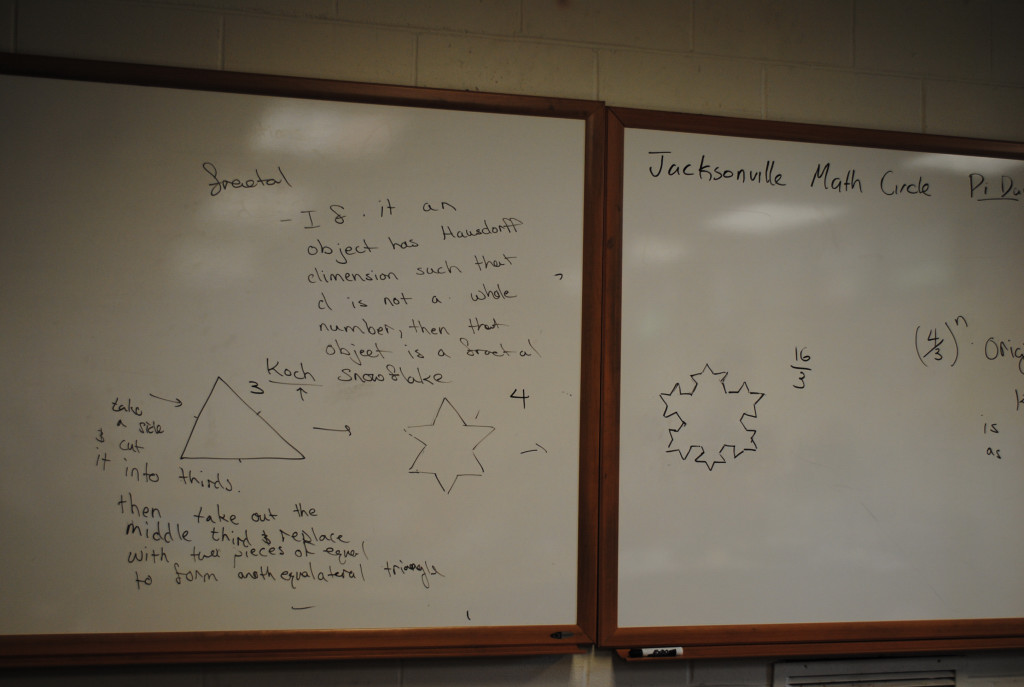 fractal
- If it an
object has Hausdorff
dimension such that
d is not a whole
number, then that
object is a fractal
Koch snowflake
↑
3
4
take
a side
& cut
it into thirds.
then take out the
middle third & replace
with two pieces of equal
to form anoth equalateral triangle
Jacksonville Math Circle Pi Da
16
3
(4/3)^n . Orig
is
as